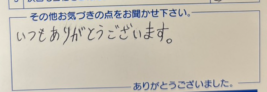 その他お気づきの点をお聞かせ下さい。
いつもありがとうございます。
ありがとうございました。